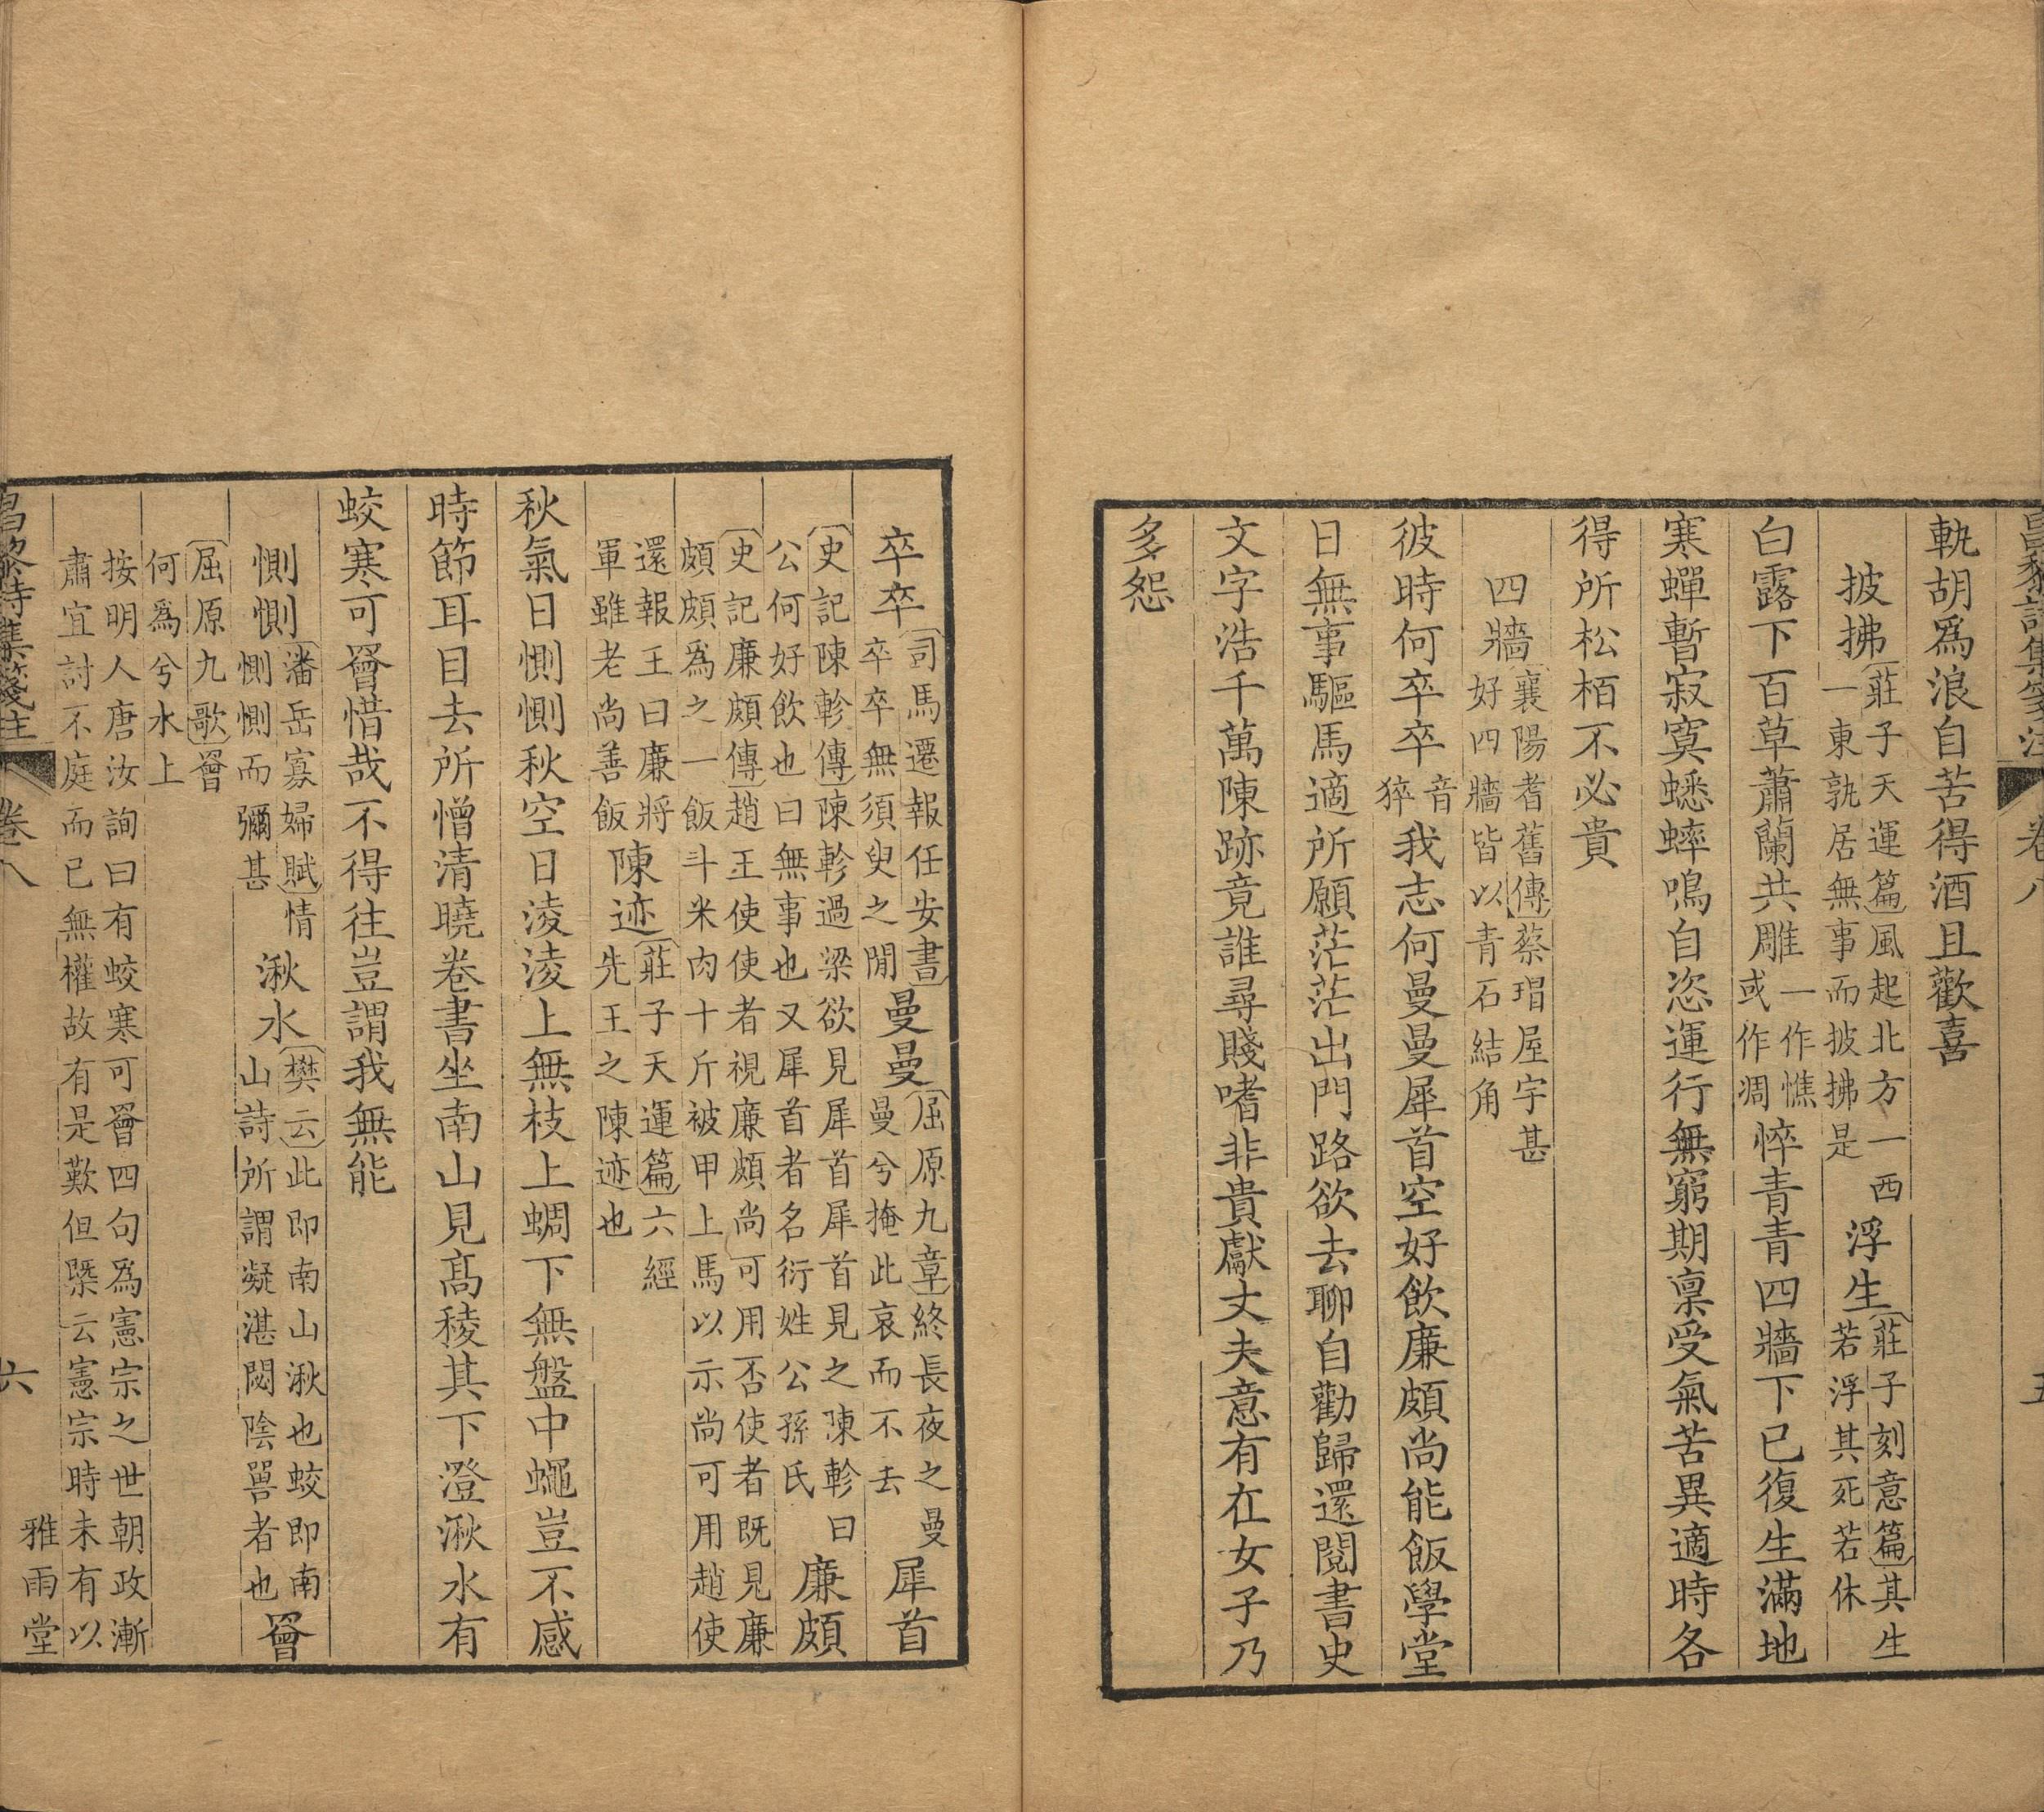 昌黎詩集箋注 卷八 五
軌胡爲浪自苦得酒且歡喜
披拂莊子天運篇風起北方一西一東孰居無事而披拂是浮生莊子刻意篇其生若浮其死若休
白露下百草蕭蘭共雕一作憔或作凋悴青青四牆下已復生滿地
寒蟬暫寂寞蟋蟀鳴自恣運行無窮期稟受氣苦異適時各
得所松栢不必貴
四牆襄陽耆舊傳蔡瑁屋宇甚好四牆皆以青石結角
彼時何卒卒音猝我志何曼曼犀首空好飲廉頗尚能飯學堂
日無事驅馬適所願茫茫出門路欲去聊自勸歸還閱書史
文字浩千萬陳跡竟誰尋賤嗜非貴獻丈夫意有在女子乃
多怨
卒卒司馬遷報任安書卒卒無須臾之閒曼曼屈原九章終長夜之曼曼兮掩此哀而不去犀首
史記陳軫傳陳軫過梁欲見犀首犀首見之陳軫曰公何好飲也曰無事也又犀首者名衍姓公孫氏廉頗
史記廉頗傳趙王使使者視廉頗尚可用否使者既見廉頗頗爲之一飯斗米肉十斤被甲上馬以示尚可用趙使
還報王曰廉將軍雖老尚善飯陳迹莊子天運篇六經先王之陳迹也
秋氣日惻惻秋空日淩淩上無枝上蜩下無盤中蠅豈不感
時節耳目去所憎清曉卷書坐南山見髙稜其下澄湫水有
蛟寒可罾惜哉不得往豈謂我無能
惻惻潘岳寡婦賦情惻惻而彌甚湫水樊云此即南山湫也蛟即南山詩所謂凝湛閟陰嘼者也罾
屈原九歌罾何爲兮水上
按明人唐汝詢曰有蛟寒可罾四句爲憲宗之世朝政漸肅宜討不庭而已無權故有是歎但槩云憲宗時未有以
昌黎詩集箋注 卷八 六 雅雨堂